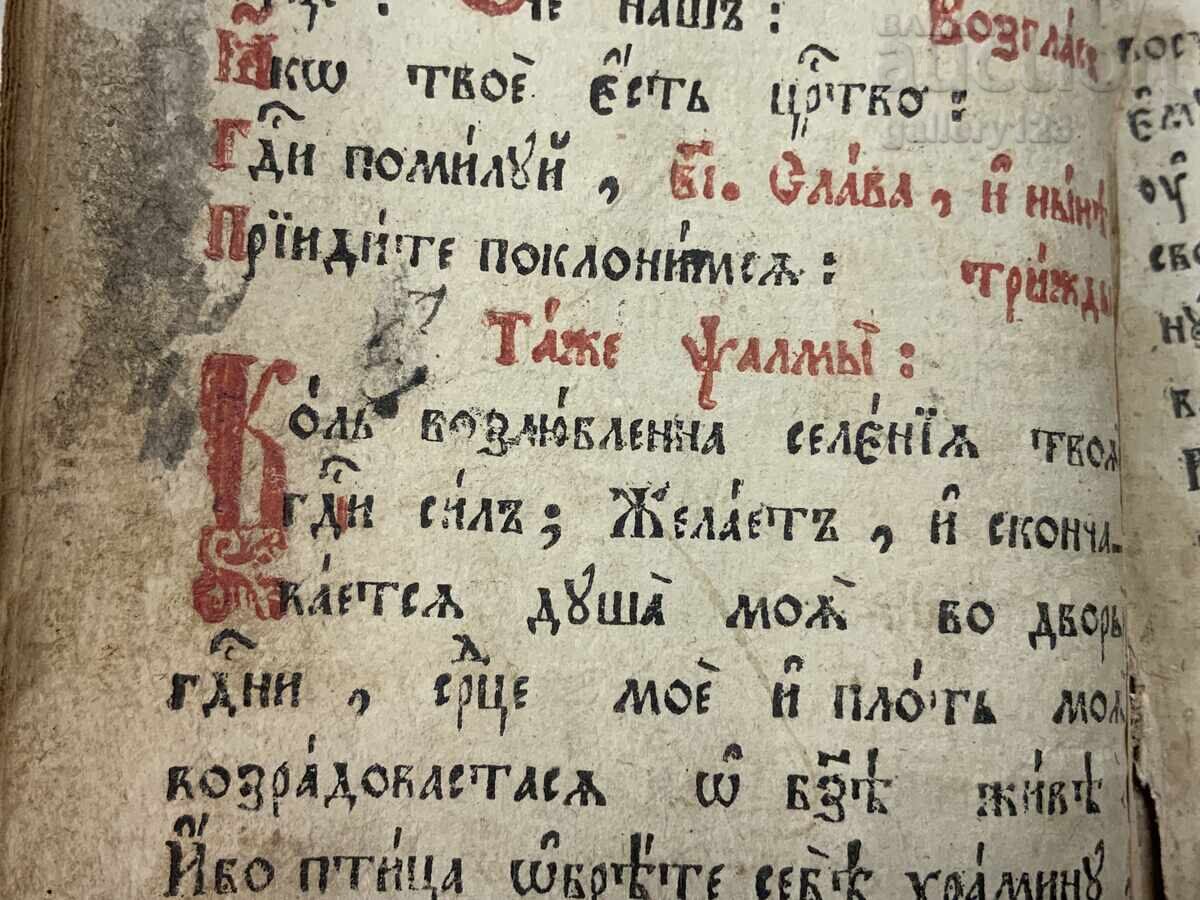 Оч҃е нашъ : Возгла́съ
Ꙗ҆́кѡ твоѐ є҆́сть црⷭ҇тво :
Гдⷭ҇и поми́луй , в҃і. Сла́ва , и҆ ны́нѣ
Прїиди́те поклони́мсѧ : три́жды
Та́же ѱалмы̀ :
Ко́ль возлю́бленна селє́нїѧ твоѧ̀
гдⷭ҇и си́лъ ; Жела́етъ , и҆ сконча-
ва́етсѧ душа̀ моѧ̀ во дворы̀
гдⷭ҇ни , срⷣце моѐ и҆ пло́ть моѧ̀
возра́довастасѧ ѡ҆ бз҃ѣ жи́вѣ
И҆́бо пти́ца ѡ҆брѣ́те себѣ̀ хра́мину